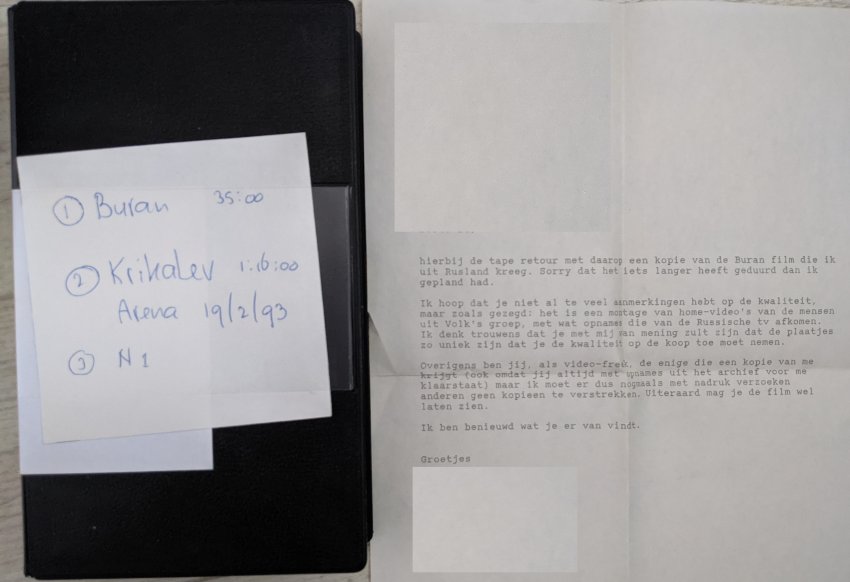 ① Buran 35:00
② Krikalev 1:16:00
Arena 19/2/93
③ N 1
hierbij de tape retour met daarop een kopie van de Buran film die ik
uit Rusland kreeg. Sorry dat het iets langer heeft geduurd dan ik
gepland had.
Ik hoop dat je niet al te veel aanmerkingen hebt op de kwaliteit,
maar zoals gezegd: het is een montage van home-video's van de mensen
uit Volk's groep, met wat opnames die van de Russische tv afkomen.
Ik denk trouwens dat je met mij van mening zult zijn dat de plaatjes
zo uniek zijn dat je de kwaliteit op de koop toe moet nemen.
Overigens ben jij, als video-freak, de enige die een kopie van me
krijgt (ook omdat jij altijd met opnames uit het archief voor me
klaarstaat) maar ik moet er dus nogmaals met nadruk verzoeken
anderen geen kopieen te verstrekken. Uiteraard mag je de film wel
laten zien.
Ik ben benieuwd wat je er van vindt.
Groetjes